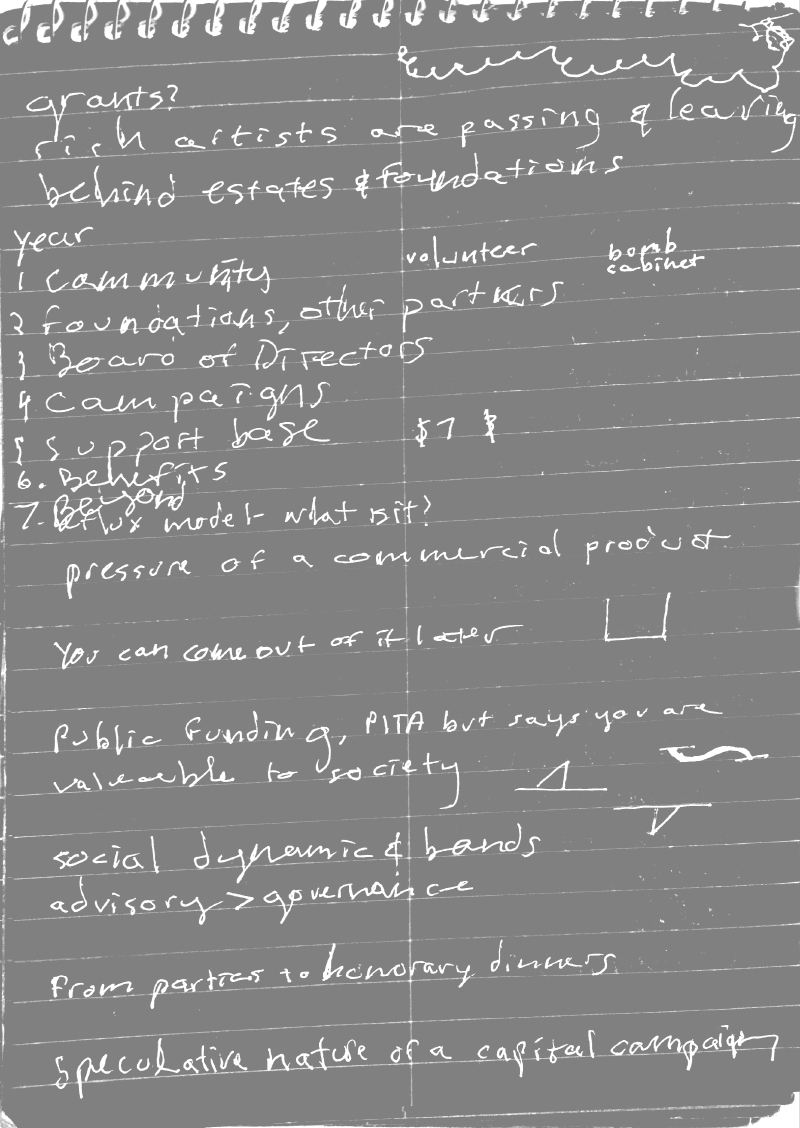 grants?
rich artists are passing & leaving
behind estates & foundations
year
1 community volunteer bomb cabinet
2 foundations, other partners
3 Board of Directors
4 campaigns
5 support base $7 $
6. Benefits
7. Beyond
model - what is it?
pressure of a commercial product
You can come out of it later
Public Funding, PITA but says you are
valueable to society
social dynamic & bonds
advisory > governance
From parties to honorary dinners
speculative nature of a capital campaign